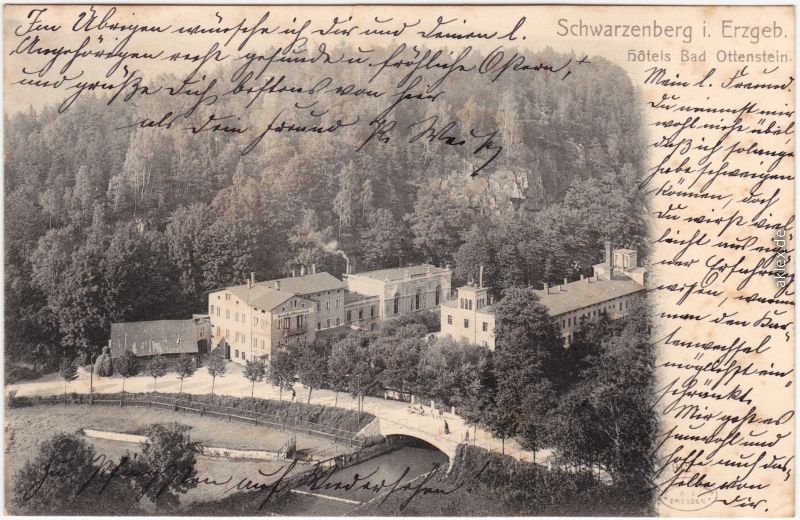 Schwarzenberg i. Erzgeb.
Hôtels Bad Ottenstein.
Mein l. Freund.
Du nimmst mir
wohl nicht übel
daß ich solange
habe schweigen
können, doch
Du wirst viel
leicht aus eig
ner Erfahrung
wissen, wenn
man den Kar
tenwechsel
möglichst ein
schränkt.
Mir geht es
sauwohl und
hoffe auch das
selbe von
Dir.
Im Übrigen wünsche ich Dir und Deinen l.
Angehörigen recht gesunde u. fröhliche Ostern, +
und grüße Dich bestens von hier
als Dein Freund R.
auf Wiedersehen!
DRESDEN
akpool.de